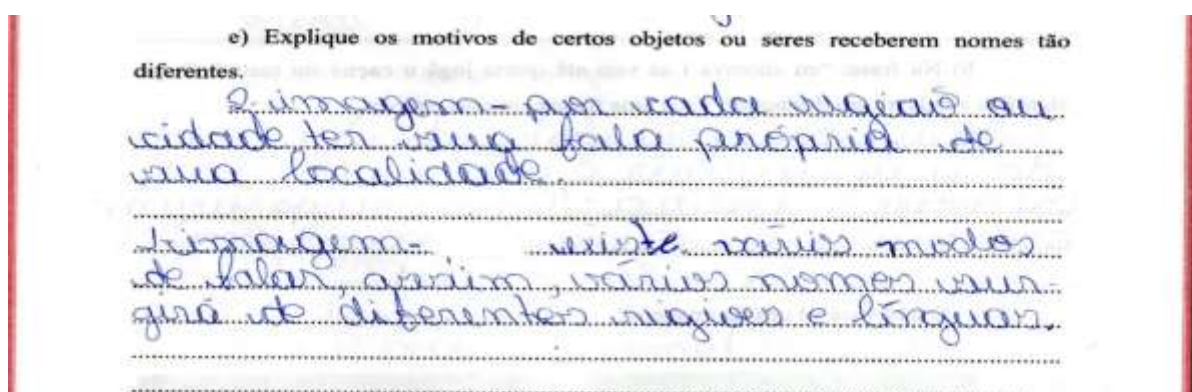 e) Explique os motivos de certos objetos ou seres receberem nomes tão
diferentes.
2-imagem- por cada região ou
cidade, ter sua fala própria de
sua localidade.
1-imagem- existe vários modos
de falar, assim, vários nomes sur-
girá de diferentes regiões e línguas.